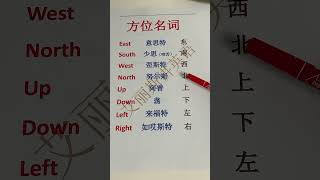 方位名词
East 意思特 东
South 少思
West 西
North 努尔斯 北
Up 阿普 上
Down 荡 下
Left 来福特 左
Right 如哎斯特 右
West
North
Up
Down
Left
西
北
上
下
左